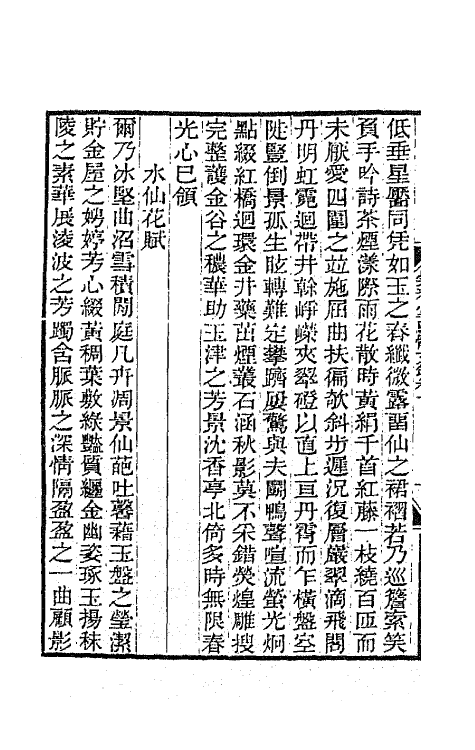 低垂星靨同凭如玉之春纖微露畱仙之裙褶若乃巡簷索笑
負手吟詩茶煙漾際雨花散時黃絹千首紅藤一枝繞百匝而
未厭愛四闌之竝施屈曲扶徧欹斜步遲況復層巖翠滴飛閣
丹明虹霓迴帶井榦崢嶸夾翠磴以直上亘丹霄而乍橫盤空
陡豎倒景孤生眩轉難定攀躋屢驚與夫鬭鴨聲喧流螢光炯
點綴紅橋迴環金井藥苗煙叢石涵秋影莫不采錯熒煌雕搜
完整護金谷之穠華助玉津之芳景沈香亭北倚多時無限春
光心已領
水仙花賦
爾乃冰堅曲沼雪積閒庭几卉凋景仙葩吐馨藉玉盤之瑩潔
貯金屋之娉婷芳心綴黃稠葉敷綠豔質纏金幽姿琢玉揚秣
陵之素華展淩波之芳躅含脈脈之深情隔盈盈之一曲顧影